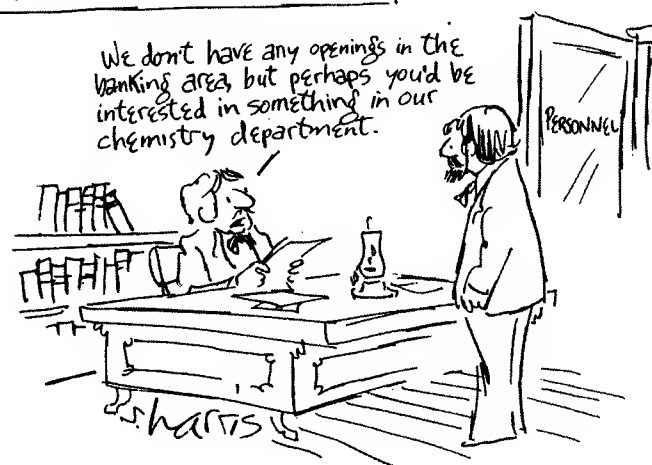 We don't have any openings in the
banking area, but perhaps you'd be
interested in something in our
chemistry department.
PERSONNEL
S. harris